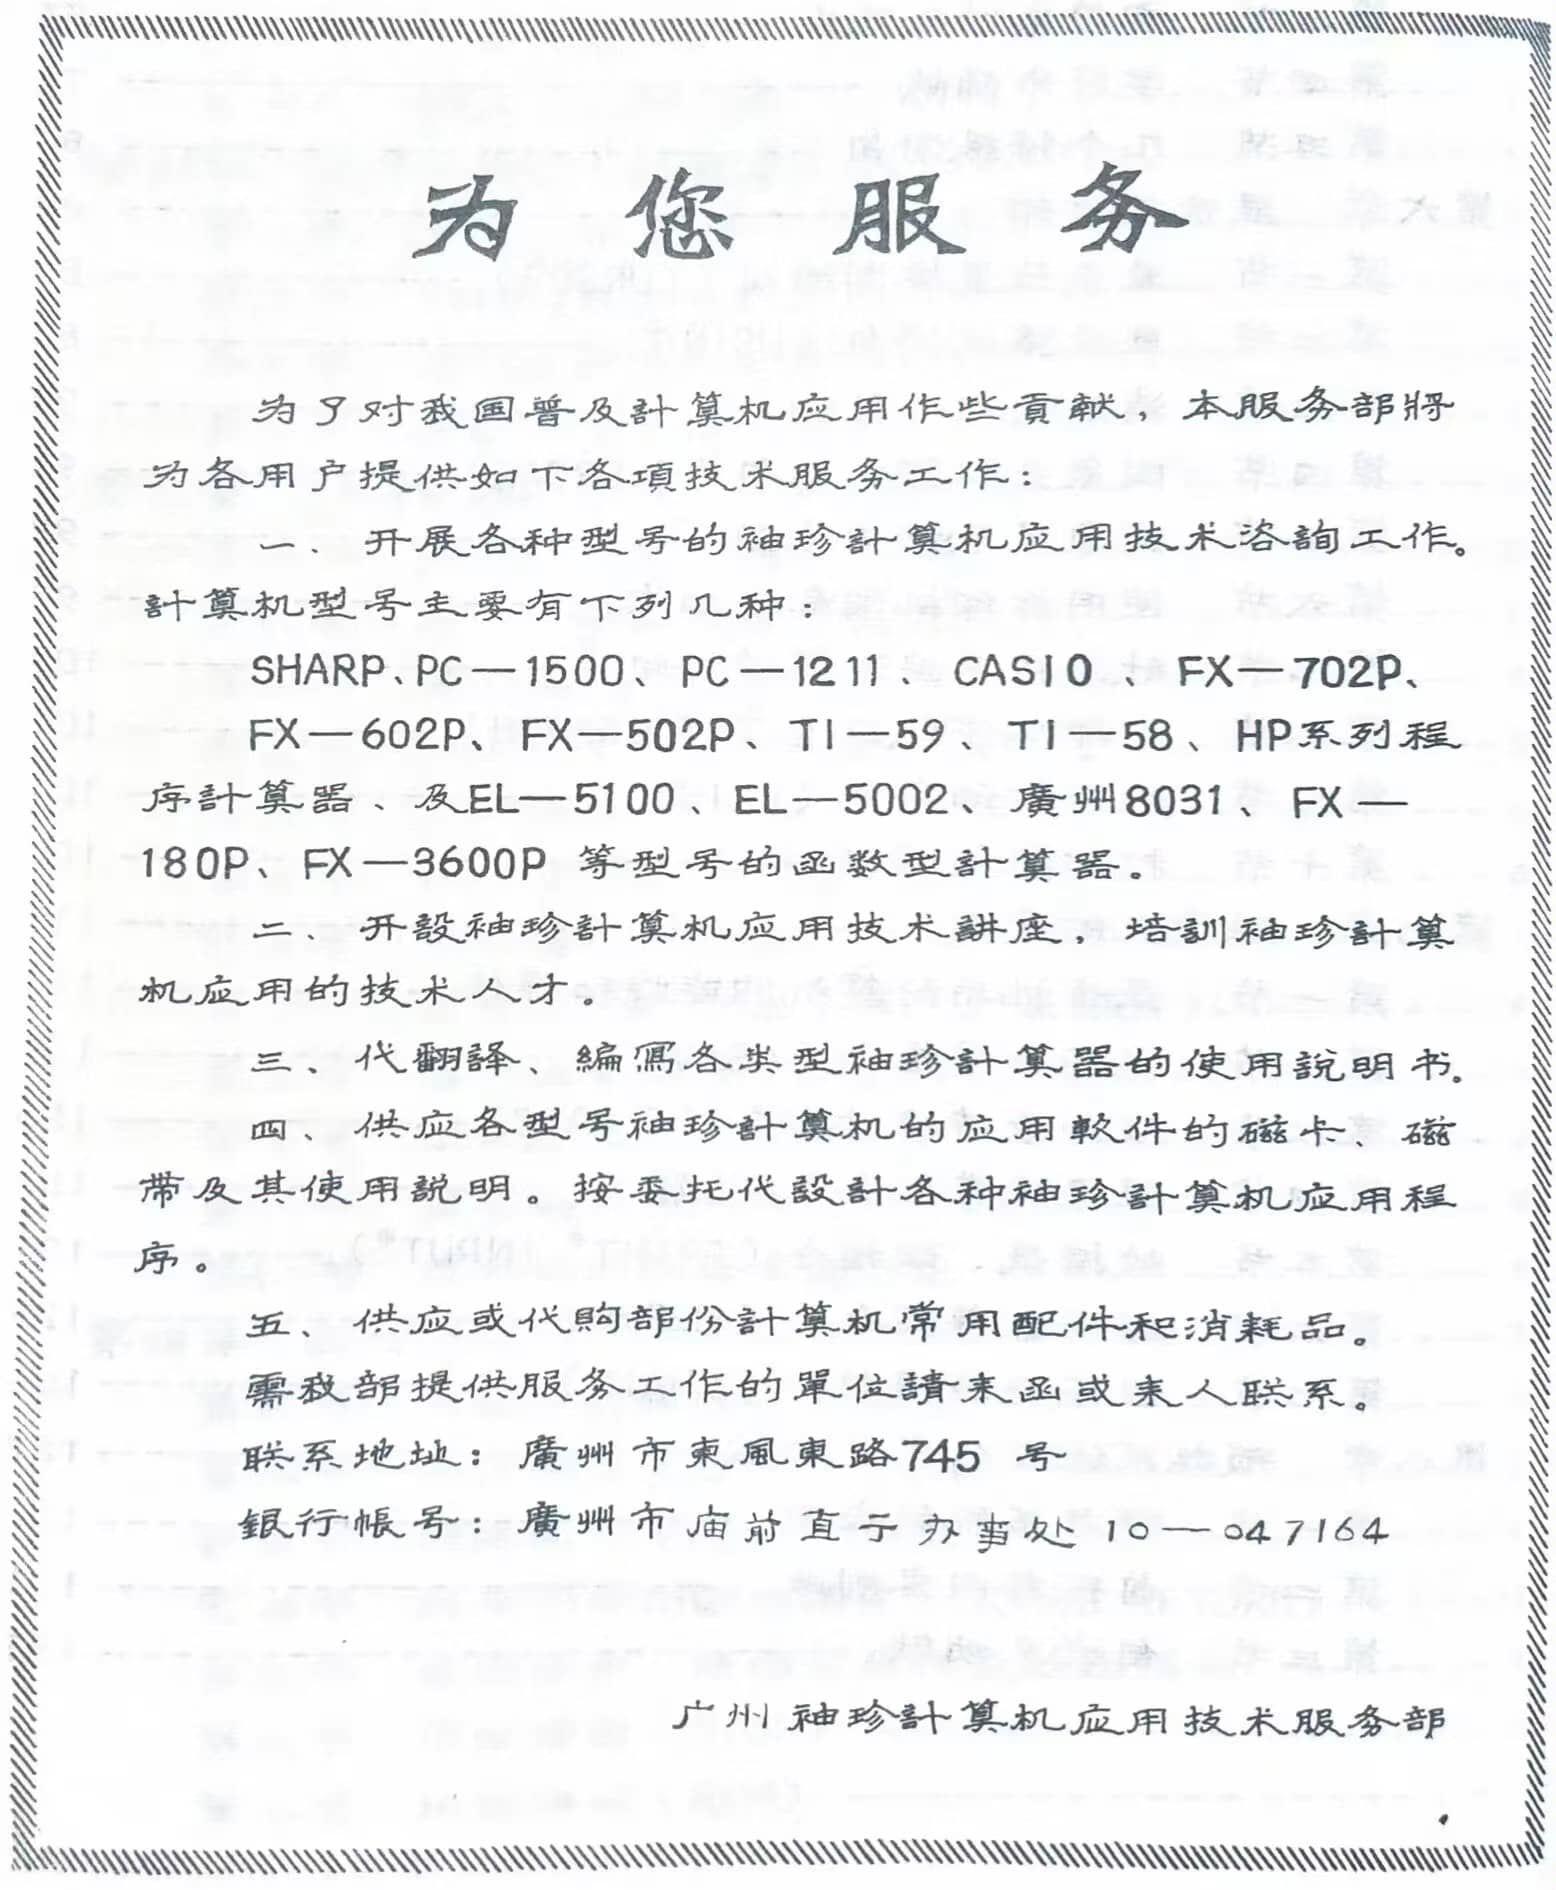 为您服务
为了对我国普及計算机应用作些貢献，本服务部將
为各用户提供如下各項技术服务工作：
一、开展各种型号的袖珍計算机应用技术咨詢工作。
計算机型号主要有下列几种：
SHARP、PC—1500、PC—1211、CASIO、FX—702P、
FX—602P、FX—502P、TI—59、TI—58、HP系列程
序計算器、及EL—5100、EL—5002、廣州8031、FX—
180P、FX—3600P等型号的函数型計算器。
二、开設袖珍計算机应用技术講座，培訓袖珍計算
机应用的技术人才。
三、代翻譯、編寫各类型袖珍計算器的使用說明书.
四、供应各型号袖珍計算机的应用軟件的磁卡、磁
带及其使用說明。按委托代設計各种袖珍計算机应用程
序。
五、供应或代购部份計算机常用配件和消耗品。
需我部提供服务工作的單位請来函或来人联系。
联系地址：廣州市東風東路745号
銀行帳号：廣州市庙前直于办事处10—047164
广州袖珍計算机应用技术服务部